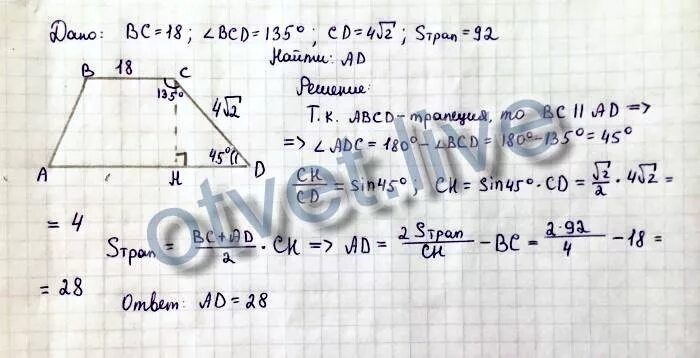 Дано: BC=18; ∠BCD=135°; CD=4√2; Sтрап=92
Найти: AD
Решение:
Т.к. ABCD-трапеция, то BC || AD =>
=> ∠ADC=180°-∠BCD=180°-135°=45°
CH/CD = sin45°; CH=sin45°·CD=√2/2·4√2=
=4
Sтрап = (BC+AD)/2 · CH => AD = 2Sтрап/CH - BC = 2·92/4 - 18 =
=28
Ответ: AD=28
B 18 C
135°
4√2
45°
A H D
otvet.live